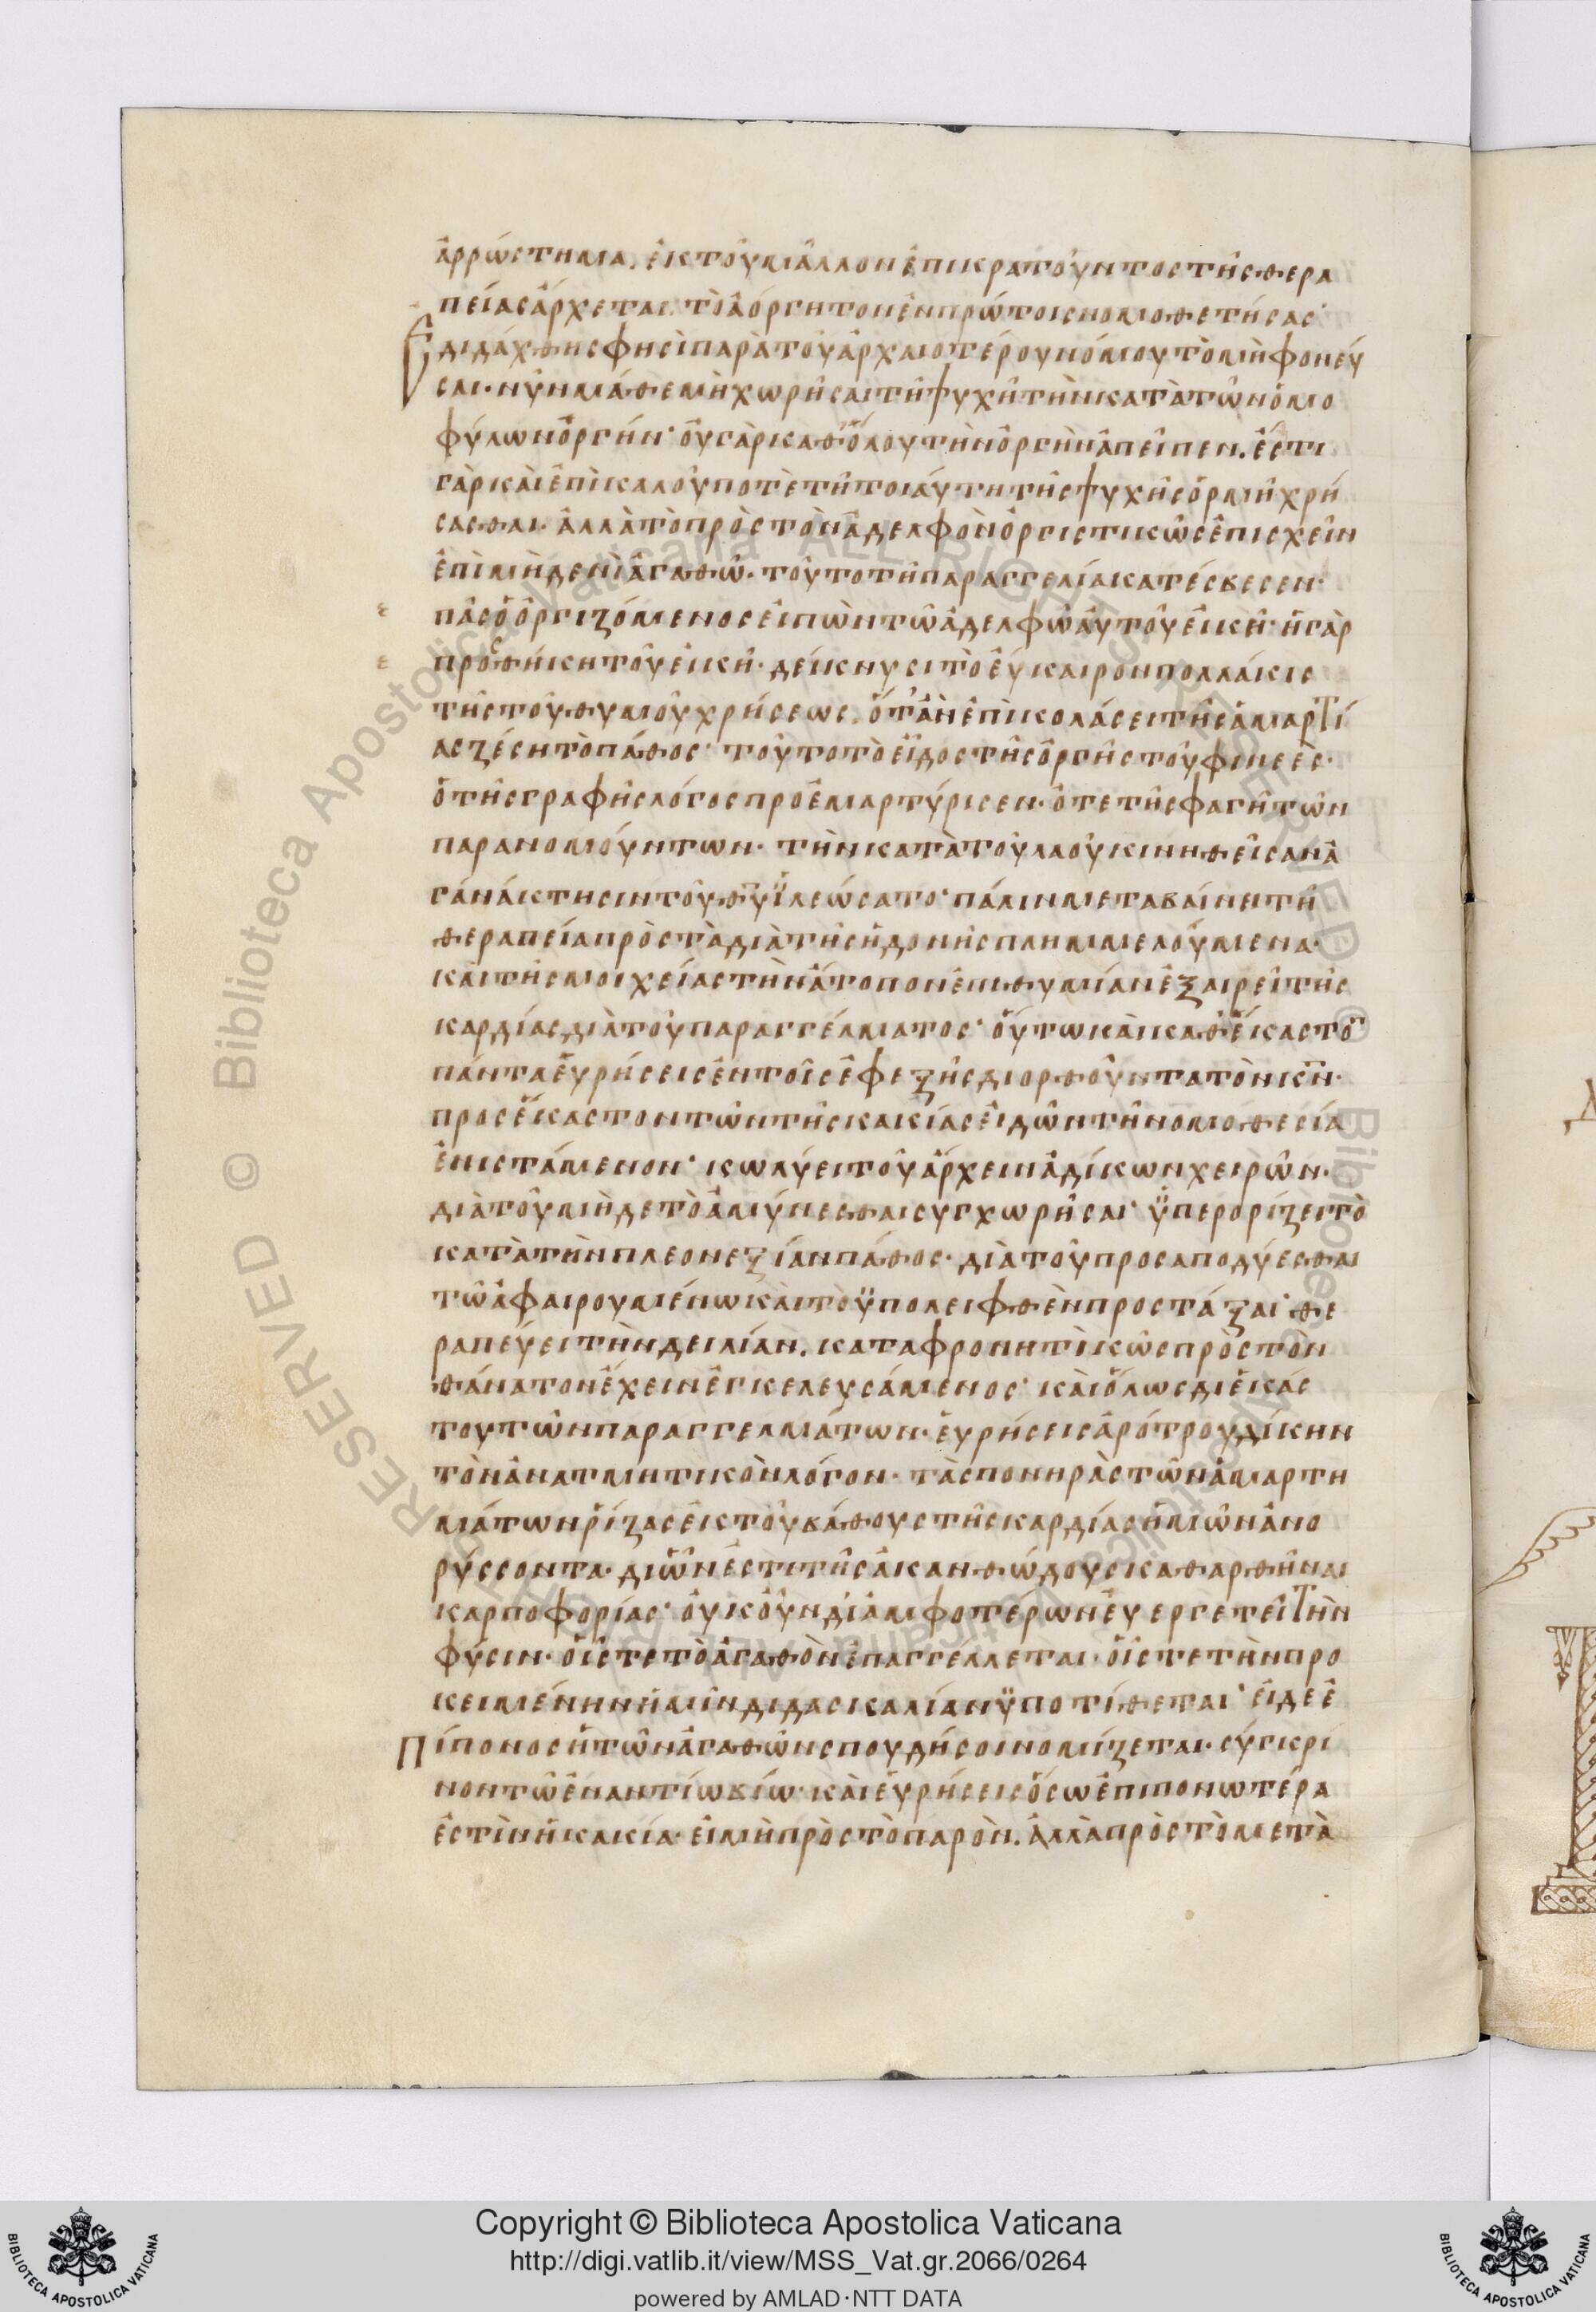 ἀρρώστημα. ἐκ τοῦ μᾶλλον ἐπικρατοῦντος τῆς θερα
πείας ἄρχεται. τὸ ἀόργητον ἐν πρώτοις νομοθετήσας·
Ἐδιδάχθης φησὶ παρὰ τοῦ ἀρχαιοτέρου νόμου τὸ μὴ φονεύ
σαι· νῦν μάθε μὴ χωρῆσαι τῇ ψυχῇ τὴν κατὰ τῶν ὁμο
φύλων ὀργήν· οὐ γὰρ καθόλου τὴν ὀργὴν ἀπεῖπεν. ἔστι
γὰρ καὶ ἐπὶ καλοῦ ποτὲ τῇ τοιαύτῃ τῆς ψυχῆς ὁρμῇ χρή
σασθαι· ἀλλὰ τὸ πρὸς τὸν ἀδελφὸν ὀργιστικῶς ἐπισχεῖν
ἐπὶ μηδενὶ ἀγαθῷ· τοῦτο τῇ παραγγελίᾳ κατέσβεσεν·
πᾶς ὁ ὀργιζόμενος εἰπὼν τῷ ἀδελφῷ αὐτοῦ εἰκῆ· ἡ γὰρ
προσθήκη τοῦ εἰκῆ· δείκνυσι τὸ εὔκαιρον πολλάκις
τῆς τοῦ θυμοῦ χρήσεως. ὅταν ἐπὶ κολάσει τῆς ἁμαρτί
ας ζέσῃ τὸ πάθος· τοῦτο τὸ εἶδος τῆς ὀργῆς τοῦ φινεὲς·
ὁ τῆς γραφῆς λόγος προεμαρτύρισεν· ὅτε τῆς φαγῆ τῶν
παρανομούντων· τὴν κατὰ τοῦ λαοῦ κινηθεῖσαν ἀ
γανάκτησιν τοῦ θυ ἱλεώσατο· πάλιν μεταβαίνει τῇ
θεραπείᾳ πρὸς τὰ διὰ τῆς ἡδονῆς πλημμελούμενα·
καὶ τῆς μοιχείας τὴν ἄτοπον ἐπιθυμίαν ἐξαιρεῖ τῆς
καρδίας διὰ τοῦ παραγγέλματος· οὕτω καὶ καθ' ἕκαστον
πάντα εὑρήσεις ἐν τοῖς ἐφεξῆς διορθοῦντα τὸν κν·
πρὸς ἕκαστον τῶν τῆς κακίας εἰδῶν τῇ νομοθεσίᾳ
ἐνιστάμενον· κωλύει τοῦ ἄρχειν ἀδίκων χειρῶν·
διὰ τοῦ μηδὲ τὸ ἀμύνεσθαι συγχωρῆσαι· ὑπερορίζει τὸ
κατὰ τὴν πλεονεξίαν πάθος· διὰ τοῦ προσαποδύεσθαι
τῷ ἀφαιρουμένῳ καὶ τὸ ὑπολειφθὲν προστάξαι· θε
ραπεύει τὴν δειλίαν. καταφρονητικῶς πρὸς τὸν
θάνατον ἔχειν ἐγκελευσάμενος· καὶ ὅλως δι' ἑκάσ
του τῶν παραγγελμάτων· εὑρήσεις ἀρότρου δίκην
τὸν ἀνατμητικὸν λόγον· τὰς πονηρὰς τῶν ἁμαρτη
μάτων ῥίζας ἐκ τοῦ βάθους τῆς καρδίας ἡμῶν ἀνο
ρύσσοντα· δι' ὧν ἔστι τῆς ἀκανθώδους καθαρθῆναι
καρποφορίας· οὐκοῦν δι' ἀμφοτέρων εὐεργετεῖ τὴν
φύσιν· οἷς τε τὸ ἀγαθὸν ἐπαγγέλλεται· οἷς τε τὴν προ
κειμένην ἡμῖν διδασκαλίαν ὑποτίθεται· εἰ δὲ ἐ
πίπονος ἡ τῶν ἀγαθῶν σπουδή σοι νομίζεται· σύγκρι
νον τῷ ἐναντίῳ βίῳ· καὶ εὑρήσεις ὅσῳ ἐπιπονωτέρα
ἐστὶν ἡ κακία· εἰ μὴ πρὸς τὸ παρὸν. ἀλλὰ πρὸς τὸ μετὰ
RESERVED © Biblioteca Apostolica Vaticana ALL RIGHTS RESERVED © Biblioteca Apostolica Vaticana ALL RIGHTS
Copyright © Biblioteca Apostolica Vaticana
http://digi.vatlib.it/view/MSS_Vat.gr.2066/0264
powered by AMLAD·NTT DATA
BIBLIOTECA APOSTOLICA VATICANA
BIBLIOTECA APOSTOLICA VATICANA